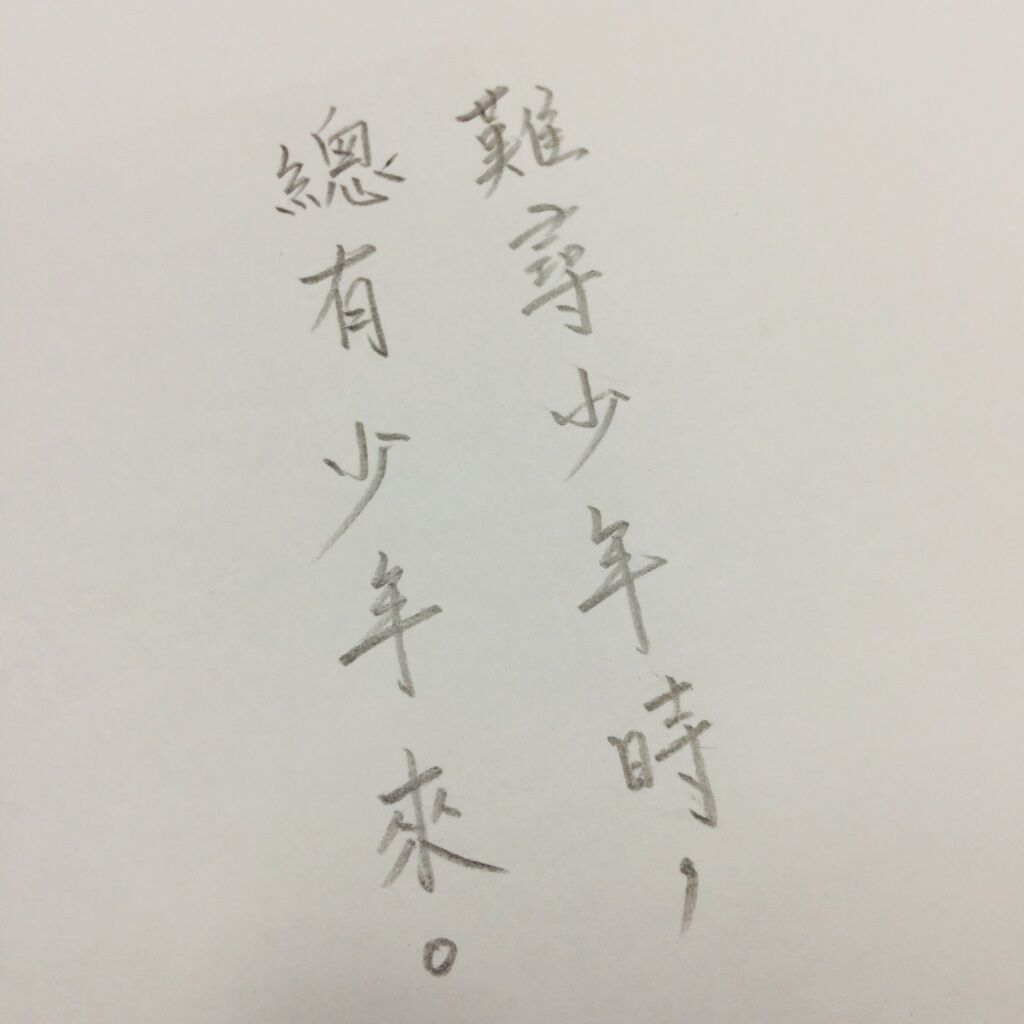 難尋少年時，
總有少年來。